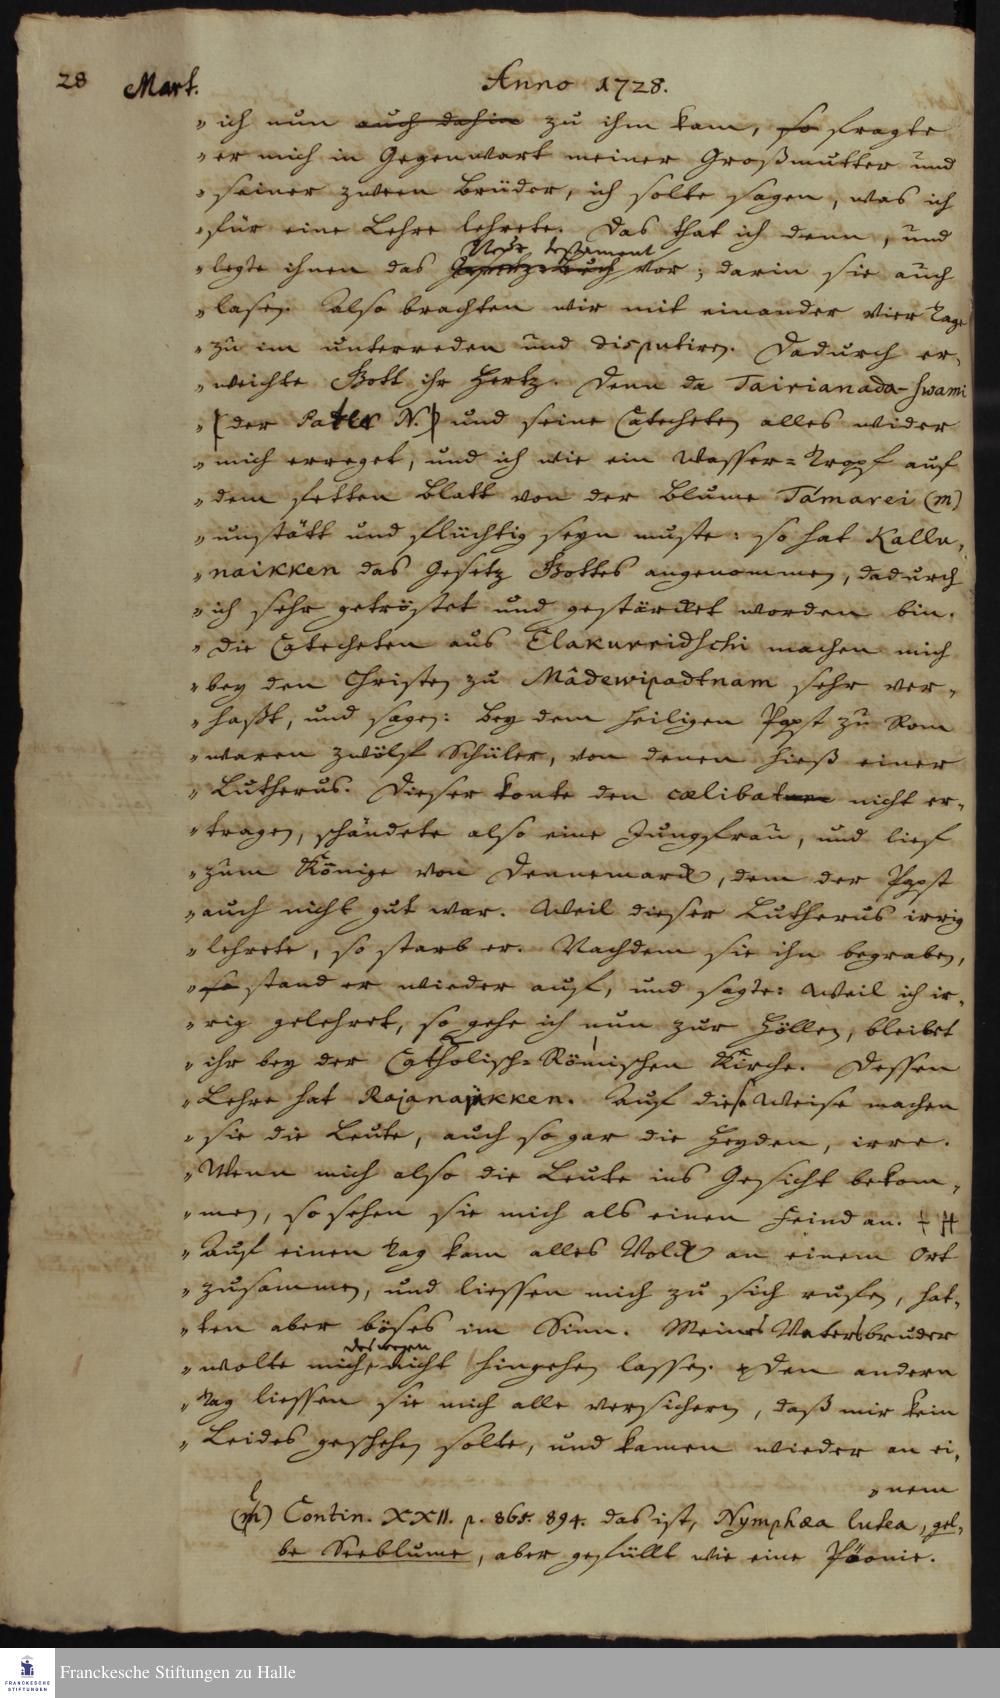 28 Mart. Anno 1728.
„ ich nun auch dahin zu ihm kam, so fragte
„ er mich in Gegenwart meiner Großmutter und
„ seiner zween Brüder, ich solte sagen, was ich
„ für eine Lehre lehrete. Das that ich denn, und
Neue Testament
„ legte ihnen das Gesetz-Buch vor; darin sie auch
„ lasen. Also brachten wir mit einander vier Tage
„ zu im unterreden und disputiren. Dadurch er„
„ weichte Gott ihr Hertz. Denn da Tairianada-Swami
„ (der Pater N.) und seine Catecheten alles wider
„ mich erreget, und ich wie ein Wasser=Tropf auf
„ dem fetten Blatt von der Blume Támarei (m)
„ unstätt und flüchtig seyn muste: so hat Kallu„
„ naikken das Gesetz Gottes angenommen, dadurch
„ ich sehr getröstet und gestärcket worden bin.
„ Die Catecheten aus Elakurridschi machen mich
„ bey den Christen zu Mâdewipadtnam sehr ver„
„ haßt, und sagen: Bey dem heiligen Papst zu Rom
„ waren zwölf Schüler, von denen hieß einer
„ Lutherus. Dieser konte den cælibatum nicht er„
„ tragen, schändete also eine Jungfrau, und lief
„ zum Könige von Dennemarck, dem der Papst
„ auch nicht gut war. Weil dieser Lutherus irrig
„ lehrete, so starb er. Nachdem sie ihn begraben,
„ so stand er wieder auf, und sagte: Weil ich ir„
„ rig gelehret, so gehe ich nun zur Höllen, bleibet
„ ihr bey der Catholisch=Römischen Kirche. Dessen
„ Lehre hat Rajanaikken. Auf diese Weise machen
„ sie die Leute, auch sogar die Heyden, irre.
„ Wenn mich also die Leute ins Gesicht bekom„
„ men, so sehen sie mich als einen Feind an.
„ Auf einen Tag kam alles Volck an einem Ort
„ zusammen, und liessen mich zu sich rufen, hat„
„ ten aber böses im Sinn. Meines Vatersbruder
deswegen
„ wolte mich nicht hingehen lassen. Den andern
„ Tag liessen sie mich alle versichern, daß mir kein
„ Leides geschehen solte, und kamen wieder an ei„
„ nem
Contin. XXII. p. 865. 894. das ist, Nymphæa lutea, gel„
be Seeblume, aber gefüllt wie eine Päonie.
FRANCKESCHE
STIFTUNGEN
Franckesche Stiftungen zu Halle